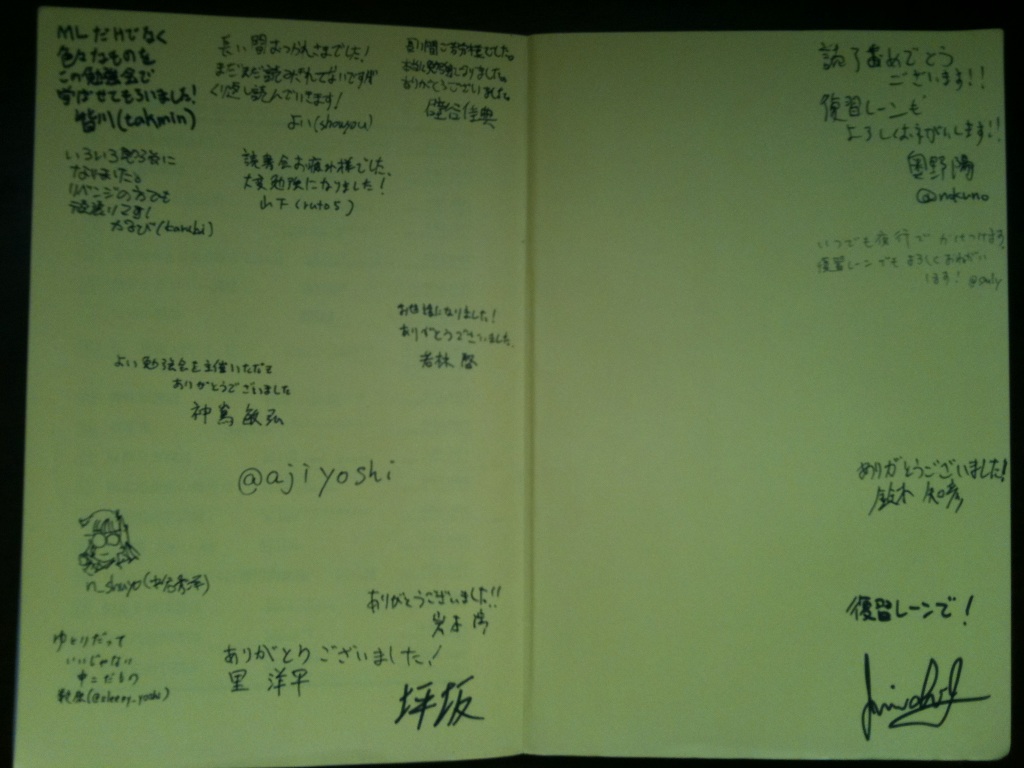 MLだけでなく
色々なものを
この勉強会で
学ばせてもらいました!
皆川(takmin)
長い間おつかれさまでした!
まだまだ読みきれてないですが
くり返し読んでいきます!
よい(showyou)
お疲れ様でした。
勉強になりました。
ありがとうございました。
佳典
いろいろ勉強に
なりました。
リベンジの方でも
頑張ります!
かねび(kanebi)
読書会お疲れ様でした。
大変勉強になりました!
山下(rutos)
お世話になりました!
ありがとうございました。
若林 啓
よい勉強会を主催いただき
ありがとうございました
神嶌 敏弘
@ajiyoshi
n_shuyo
ありがとうございました!!
ゆとりだって
いいじゃない
ゆこだもの
ありがとうございました!
里 洋平
坪坂
読了おめでとう
ございます!!
復習レーンも
よろしくおねがいします!!
奥野陽
@nokuno
いつでも夜行でかけつけます
復習レーンでもよろしくおねがい
します!
ありがとうございました!
鈴木
復習レーンで!